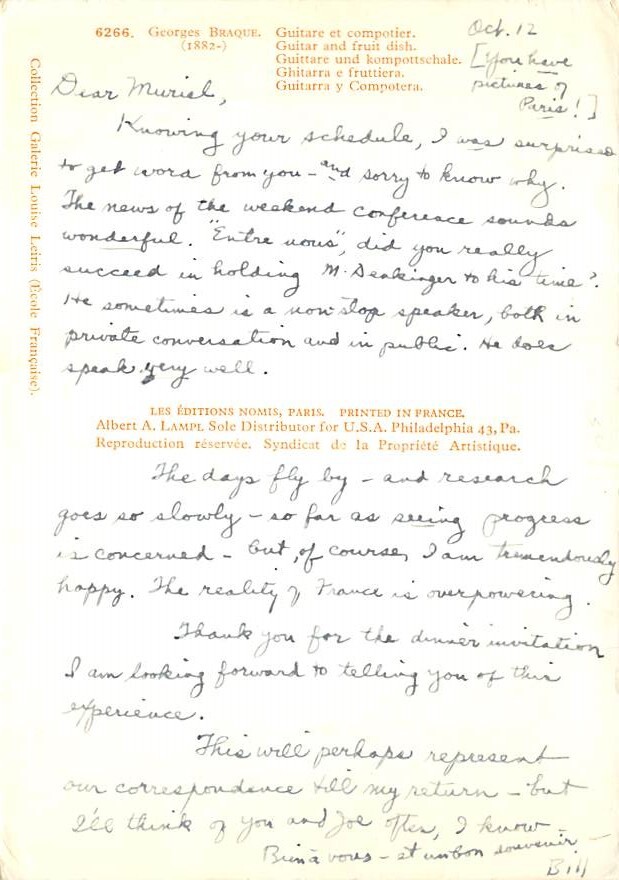 6266. Georges BRAQUE.
(1882-)
Guitare et compotier.
Guitar and fruit dish.
Guittare und kompottschale.
Ghitarra e fruttiera.
Guitarra y Compotera.
Collection Galerie Louise Leiris (École Française).
Oct. 12
[You have
pictures of
Paris!]
Dear Muriel,
Knowing your schedule, I was surprised
to get word from you - and sorry to know why.
The news of the weekend conference sounds
wonderful. "Entre nous", did you really
succeed in holding M. Denkinger to his time?
He sometimes is a non-stop speaker, both in
private conversation and in public. He does
speak very well.
LES ÉDITIONS NOMIS, PARIS. PRINTED IN FRANCE.
Albert A. LAMPL Sole Distributor for U.S.A. Philadelphia 43, Pa.
Reproduction réservée. Syndicat de la Propriété Artistique.
The days fly by - and research
goes so slowly - so far as seeing progress
is concerned - but, of course, I am tremendously
happy. The reality of France is overpowering.
Thank you for the dinner invitation
I am looking forward to telling you of this
experience.
This will perhaps represent
our correspondence till my return - but
I'll think of you and Joe often, I know -
Bien à vous - et un bon souvenir -
Bill